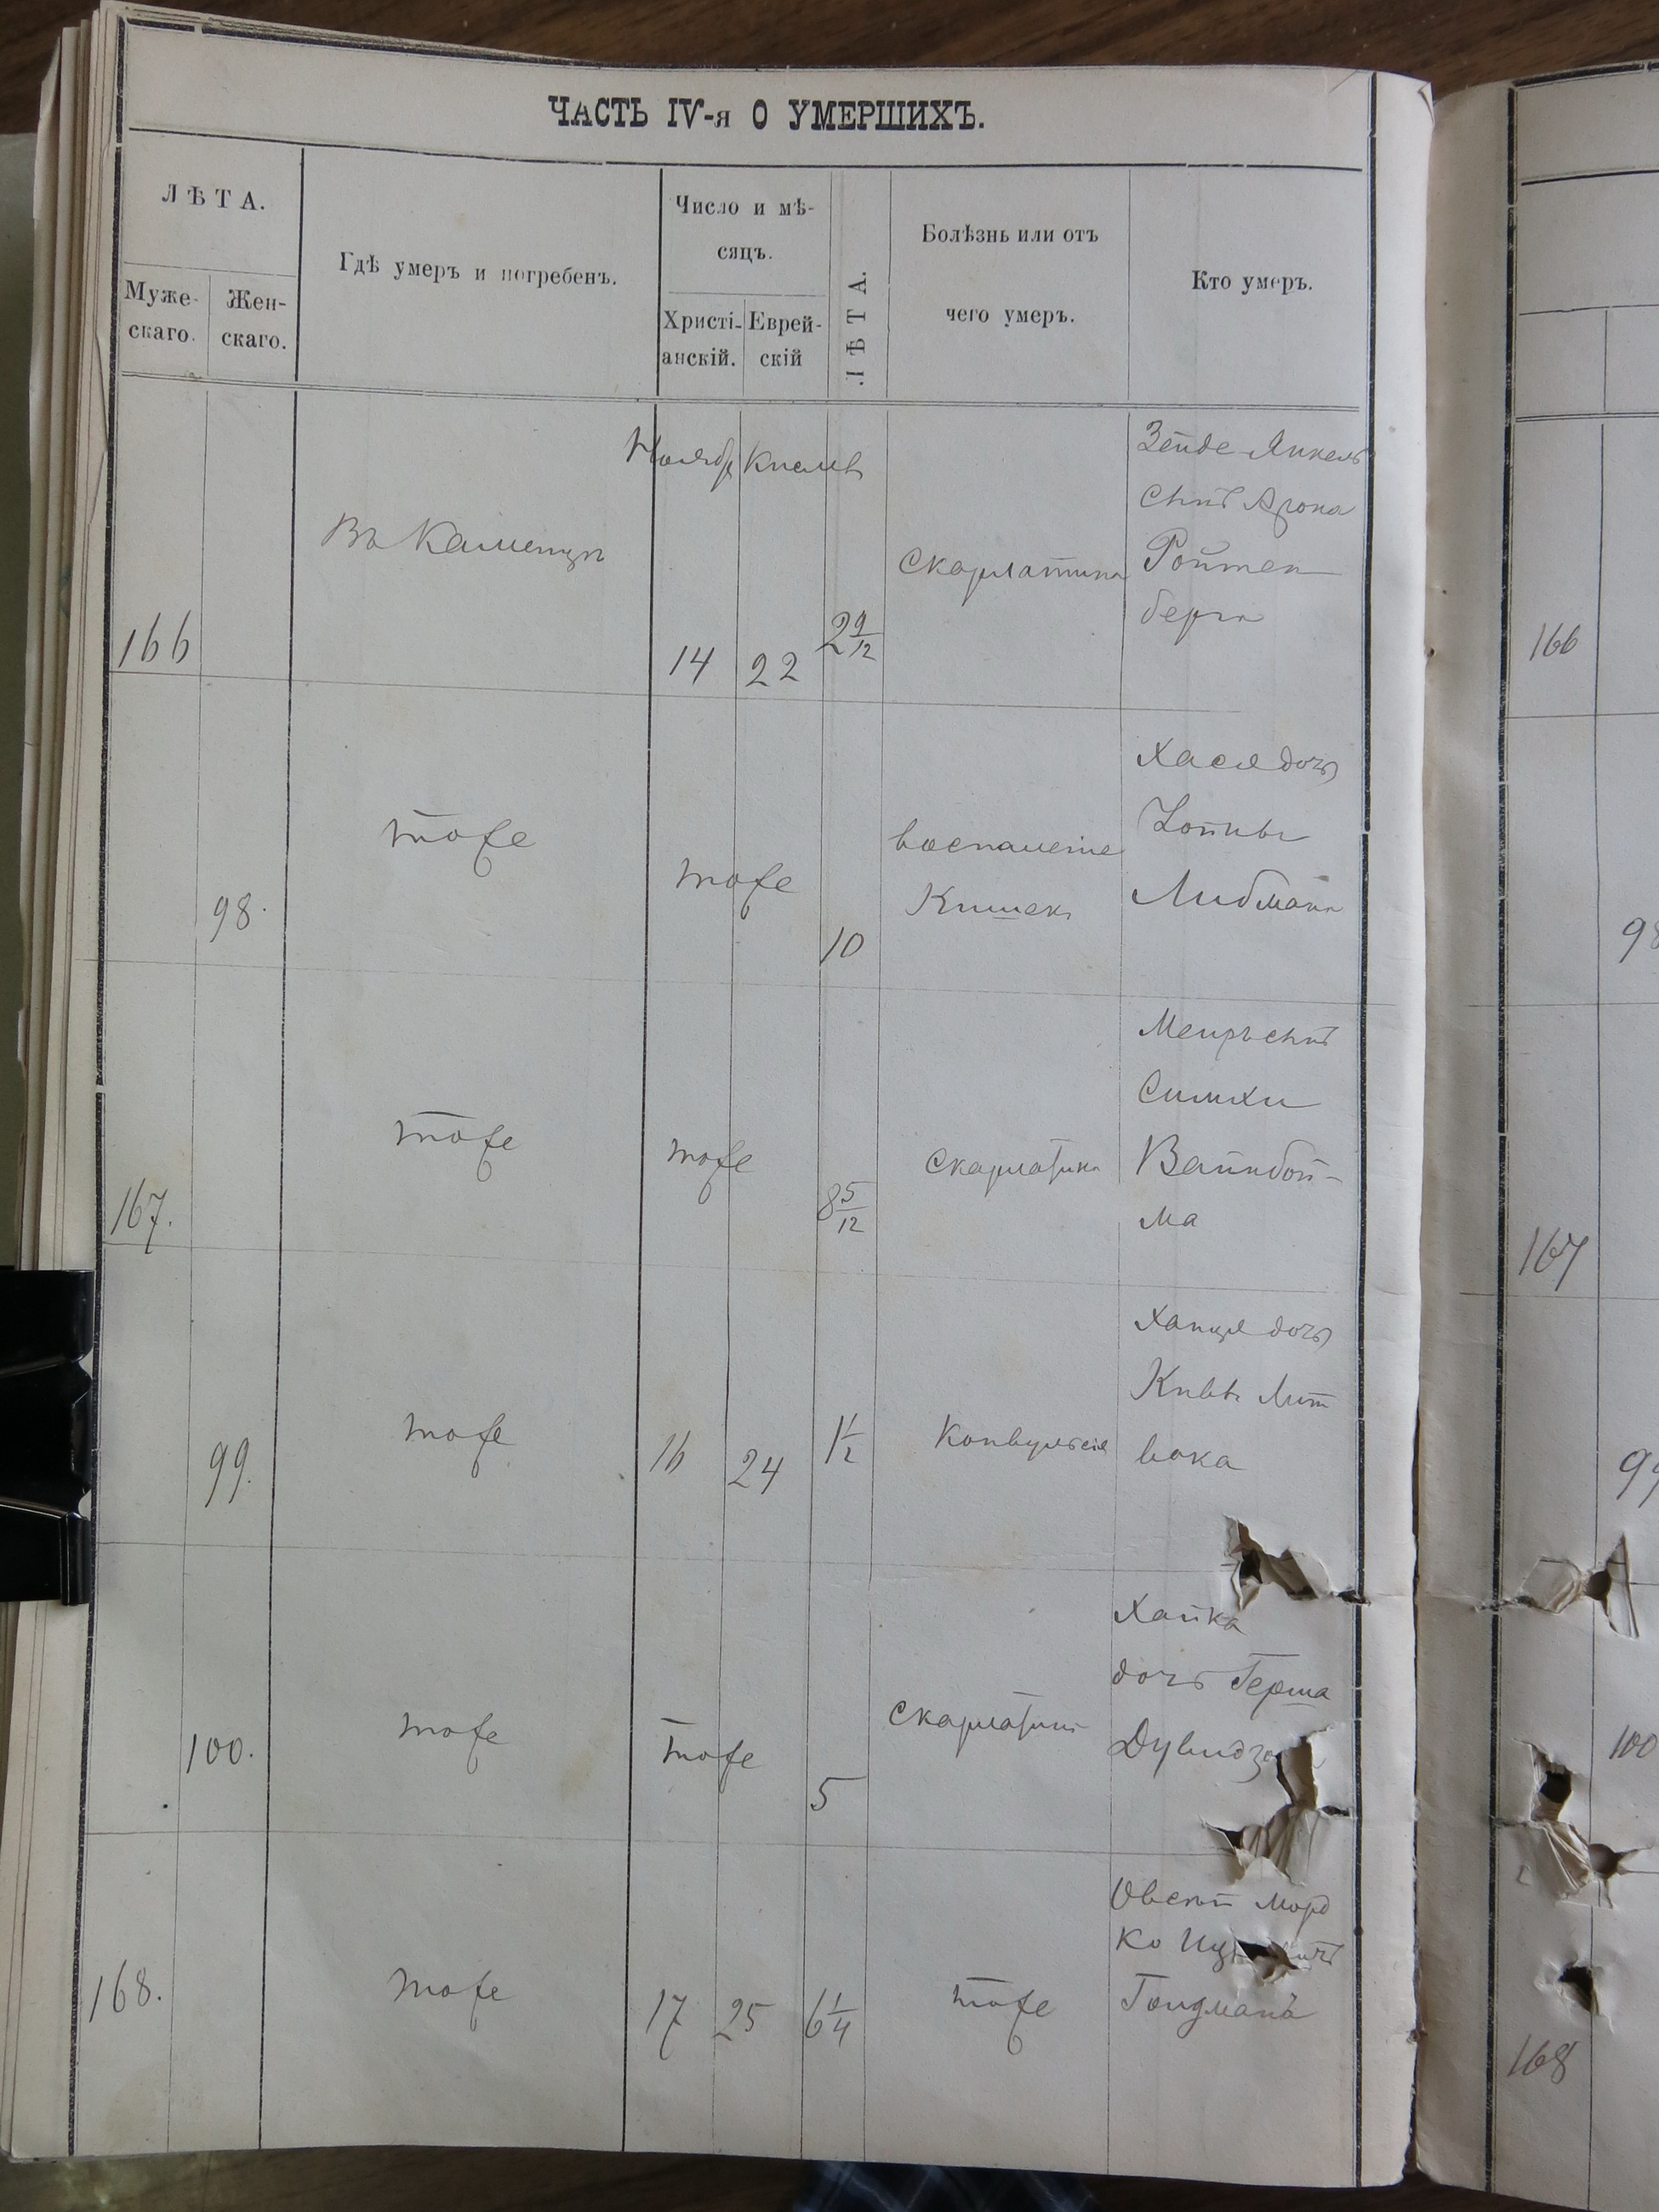 ЧАСТЬ IV-я О УМЕРШИХЪ.
ЛѢТА.
Муже-
скаго.
Жен-
скаго.
Гдѣ умеръ и погребенъ.
Число и мѣ-
сяцъ.
Христі-
анскій.
Еврей-
скій
ЛѢТА.
Болѣзнь или отъ
чего умеръ.
Кто умеръ.
166
Въ Каменцѣ
Ноябр Кислв
14 22
2 9/12
Скарлатина
Зейде Янкель
сынъ Арона
Ройтен
берга
166
98.
тоже
тоже
10
воспаленіе
Кишек
Хася дочь
Либмана
98
167.
тоже
тоже
8 5/12
скарлатина
Меиръ сынъ
Симхи
Вайнбой-
ма
167
99.
тоже
16 24
1 1/2
Конвульсія
Ханця дочь
Кивы Лит
вака
99
100.
тоже
тоже
5
скарлатин
Хайка
дочь Герша
100
168.
тоже
17 25
6 1/4
тоже
Морд
ко
Гоицманъ
168